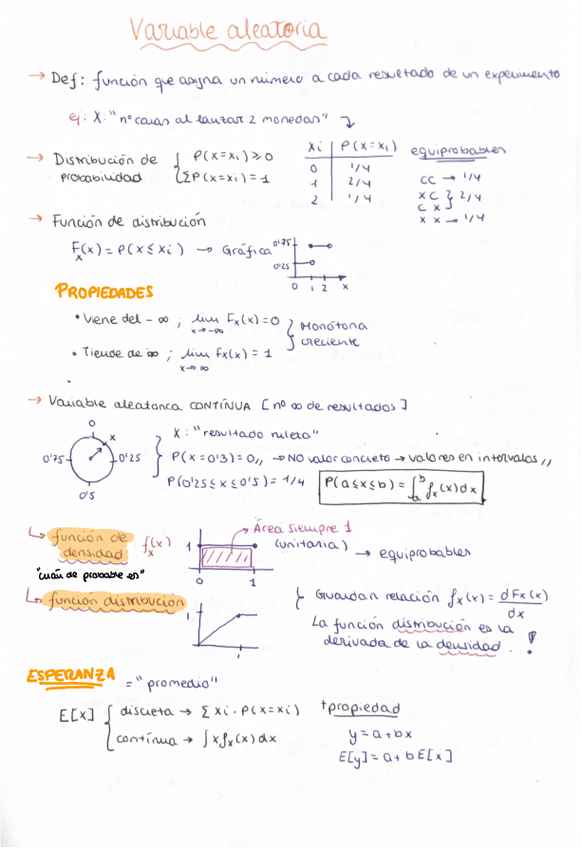 Variable aleatoria
→ Def: función que asigna un número a cada resultado de un experimento
ej: X: "nº caras al lanzar 2 monedas"
→ Distribución de probabilidad { P(X=xi) ≥ 0
ΣP(X=xi) = 1
Xi | P(X=Xi)
0 | 1/4
1 | 2/4
2 | 1/4
equiprobables
CC → 1/4
XC } 2/4
CX
XX → 1/4
→ Función de distribución
F_x(x) = P(X ≤ Xi) → Gráfica
0'75
0'25
0 1 2 x
PROPIEDADES
• Viene del -∞ ; lim F_x(x) = 0
x→-∞
} Monótona creciente
• Tiende de ∞ ; lim F_x(x) = 1
x→∞
→ Variable aleatoria CONTÍNUA [nº ∞ de resultados]
0
x
0'75
0'25
0'5
X: "resultado ruleta"
P(X=0'3) = 0,, → NO valor concreto → valores en intervalos,,
P(0'25 ≤ x ≤ 0'5) = 1/4
P(a≤x≤b) = ∫_a^b f_x(x)dx
↳ función de densidad f_x(x)
"cuán de probable es"
1
0 1
→ Área siempre 1
(unitaria) → equiprobables
↳ función distribución
1
1
} Guardan relación f_x(x) = dF_x(x)/dx
La función distribución es la
derivada de la densidad. !
ESPERANZA = "promedio"
E[X] { discreta → Σ Xi · P(X=Xi)
contínua → ∫ x f_x(x) dx
+propiedad
y = a + bx
E[y] = a + b E[x]